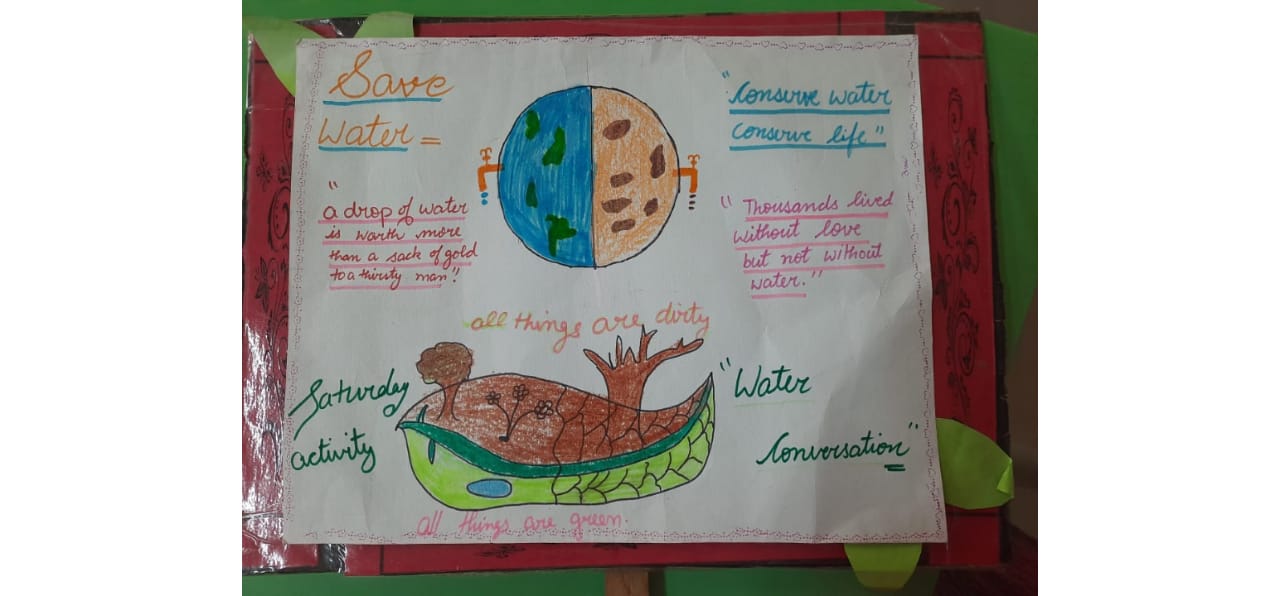 Save
Water =
"
a drop of water
is worth more
than a sack of gold
to a thirsty man"!
"Conserve water
Conserve life"
" Thousands lived
without love
but not without
water."
all things are dirty
Saturday
activity
"Water
Conversation"
all things are green.